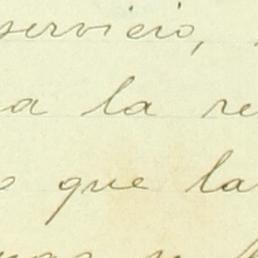 servicio,
a la re
que la
y